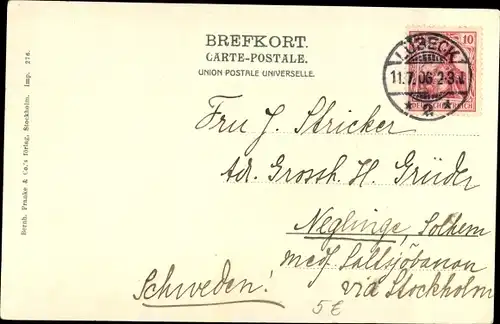 BREFKORT.
CARTE-POSTALE.
UNION POSTALE UNIVERSELLE.
10
LÜBECK
11.7.06 2-3
* 2 *
Fru J. Stricker
Adr. Grossh. H. Grüder
Neglinge, Solhem
med Saltsjöbanan
Schweden! via Stockholm
5€
Bernh. Franke & Co.'s förlag, Stockholm. Imp. 276.